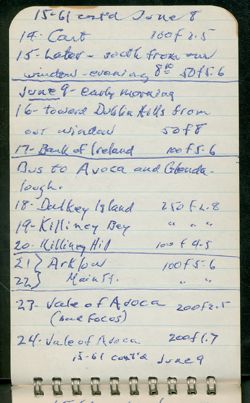 15-61 cont'd June 8
14- Cart 100 f 2.5
15- Later - south from our
window - evening 8:10 50 f 5-6
June 9 - early morning
16- toward Dublin Hills from
our window 50 f 8
17- Bank of Ireland 100 f 5-6
Bus to Avoca and Glenda-
lough.
18- Dalkey Island 250 f 4.8
19- Killiney Bay " " "
20- Killiney Hill 100 f 4.5
21 } Arklow 100 f 5-6
22 } Main St. " "
23- Vale of Avoca 200 f 2.5
(near focus)
24- Vale of Avoca 200 f 1.7
15-61 cont'd June 9